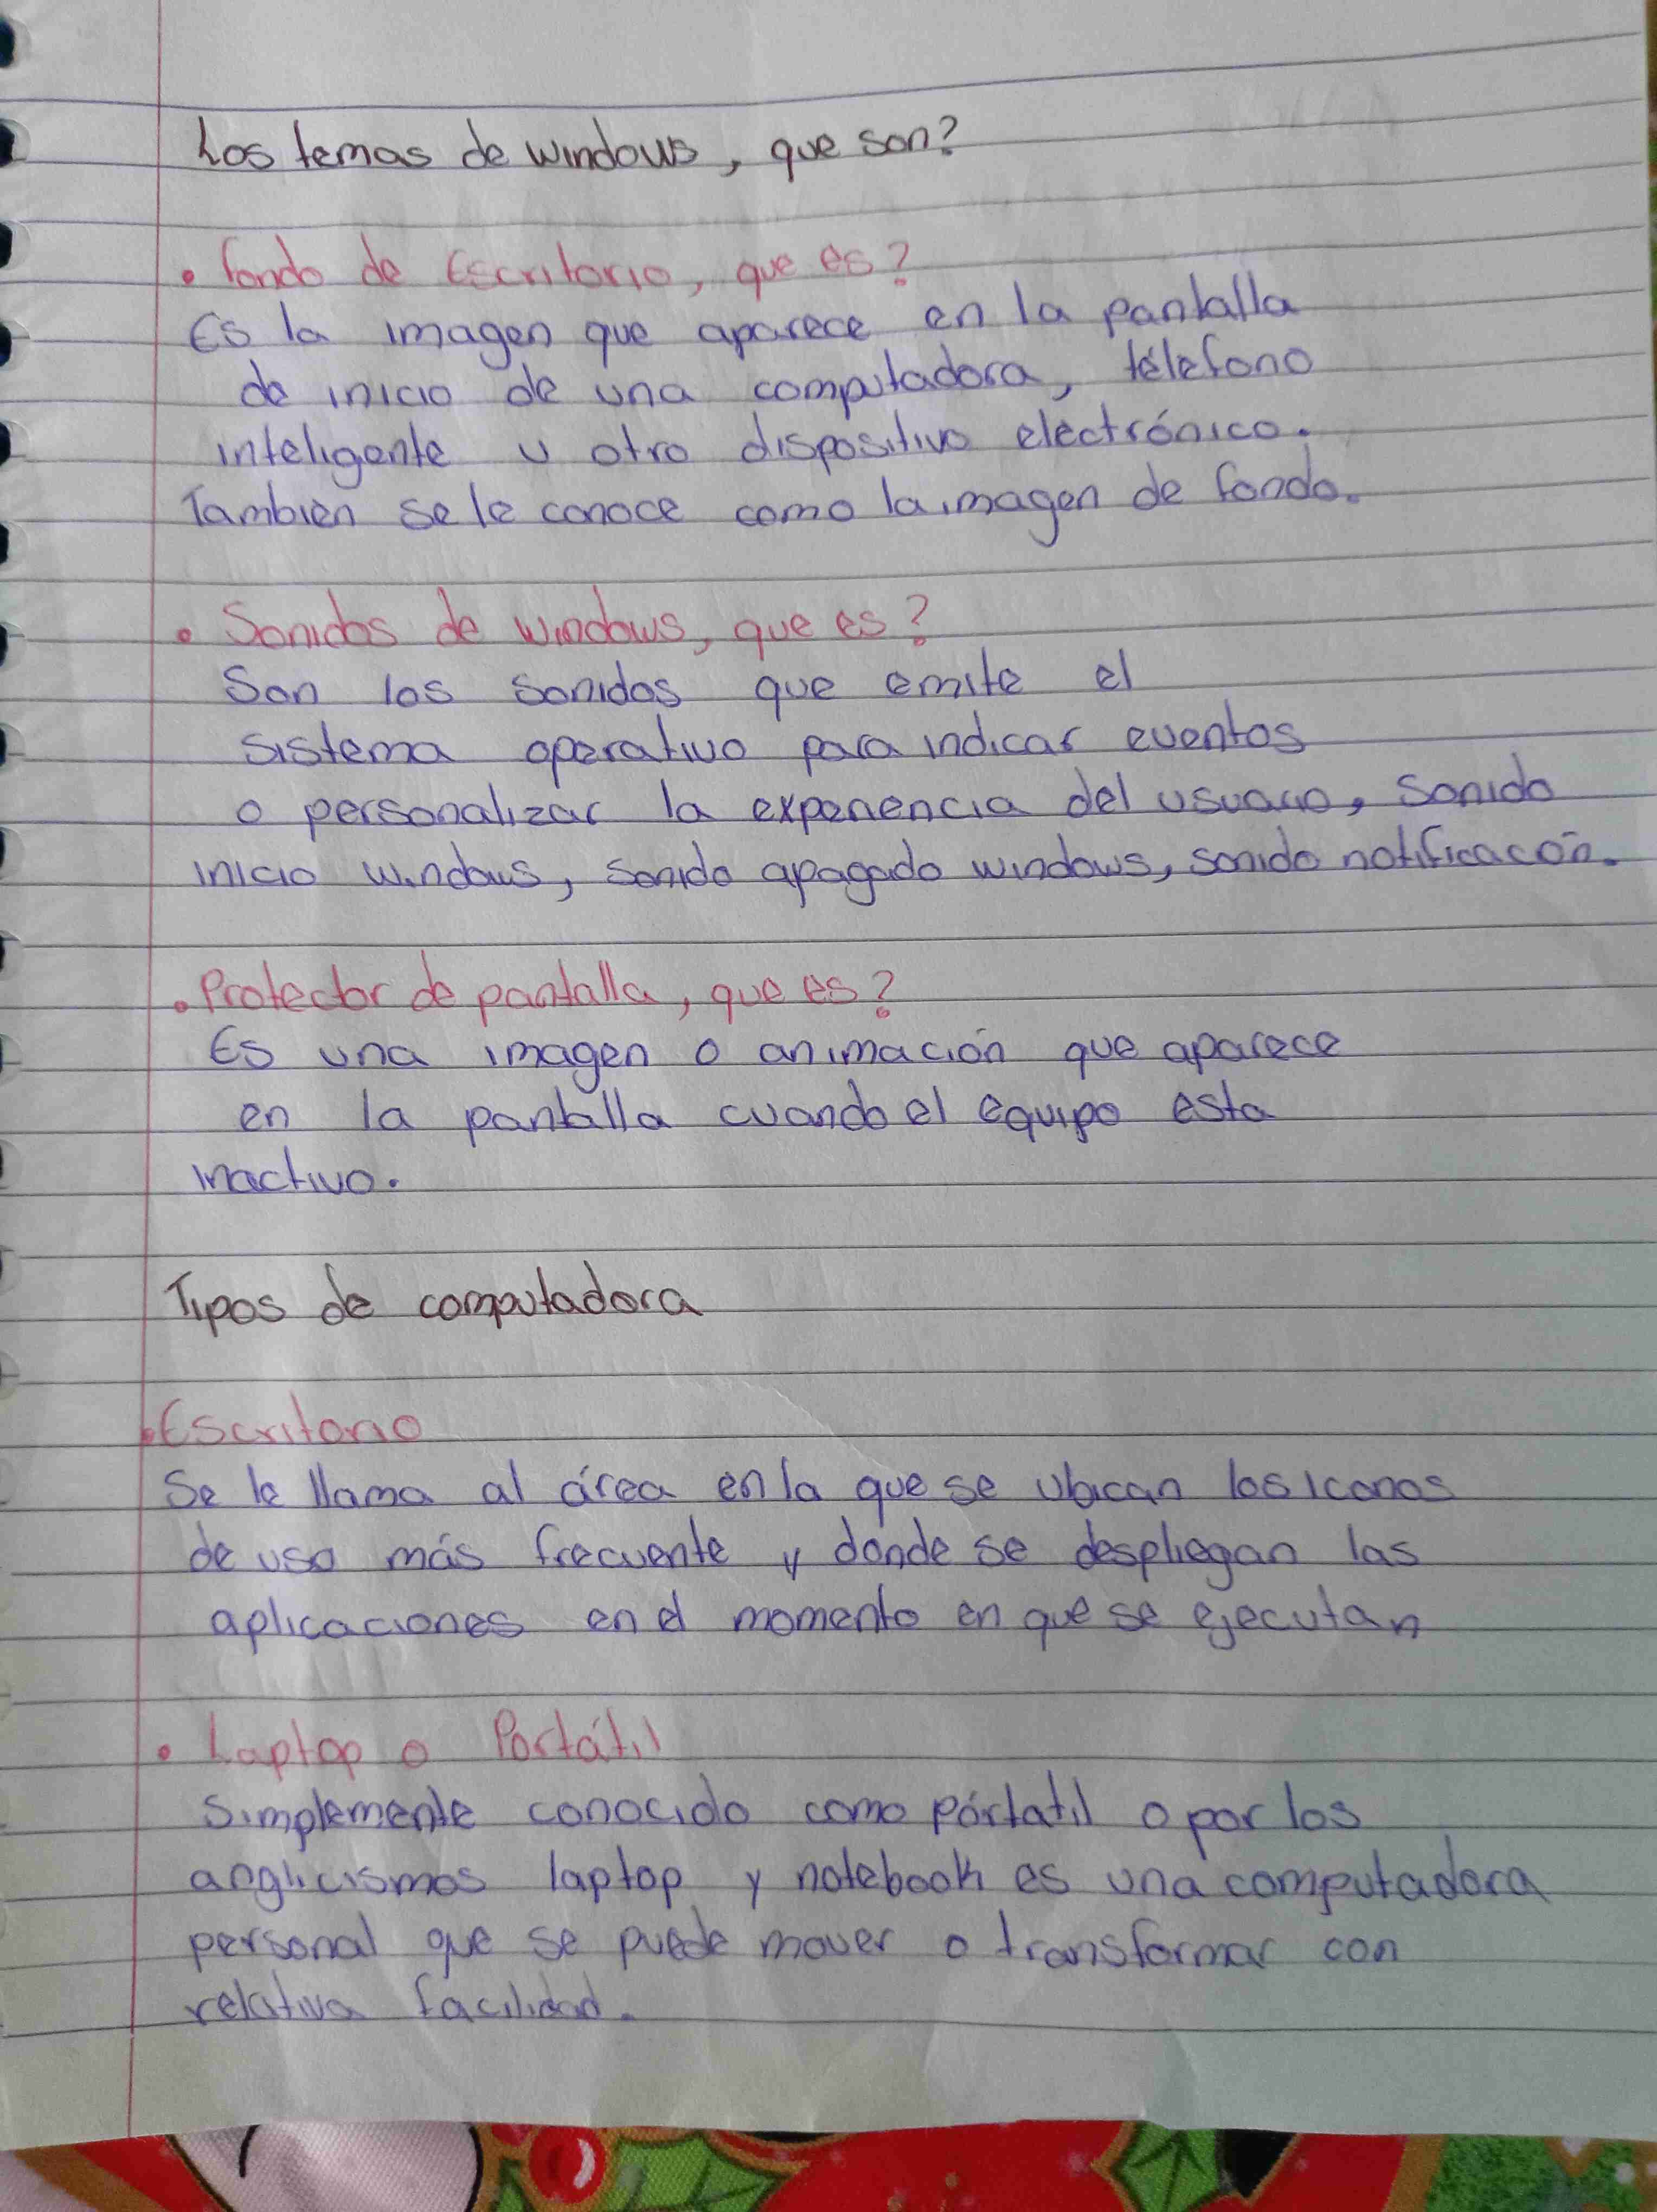 Los temas de windows, que son?
• fondo de Escritorio, que es?
Es la imagen que aparece en la pantalla
de inicio de una computadora, télefono
inteligente u otro dispositivo electrónico.
Tambien se le conoce como la imagen de fondo.
• Sonidos de windows, que es?
Son los sonidos que emite el
sistema operativo para indicar eventos
o personalizar la experiencia del usuario, sonido
inicio windows, sonido apagado windows, sonido notificacón.
• Protector de pantalla, que es?
Es una imagen o animación que aparece
en la pantalla cuando el equipo esta
inactivo.
Tipos de computadora
• Escritorio
Se le llama al área en la que se ubican los iconos
de uso más frecuente y donde se despliegan las
aplicaciones en el momento en que se ejecutan
• Laptop o Portátil
Simplemente conocido como pórtatil o por los
anglicismos laptop y notebook es una computadora
personal que se puede mover o transformar con
relativa facilidad.